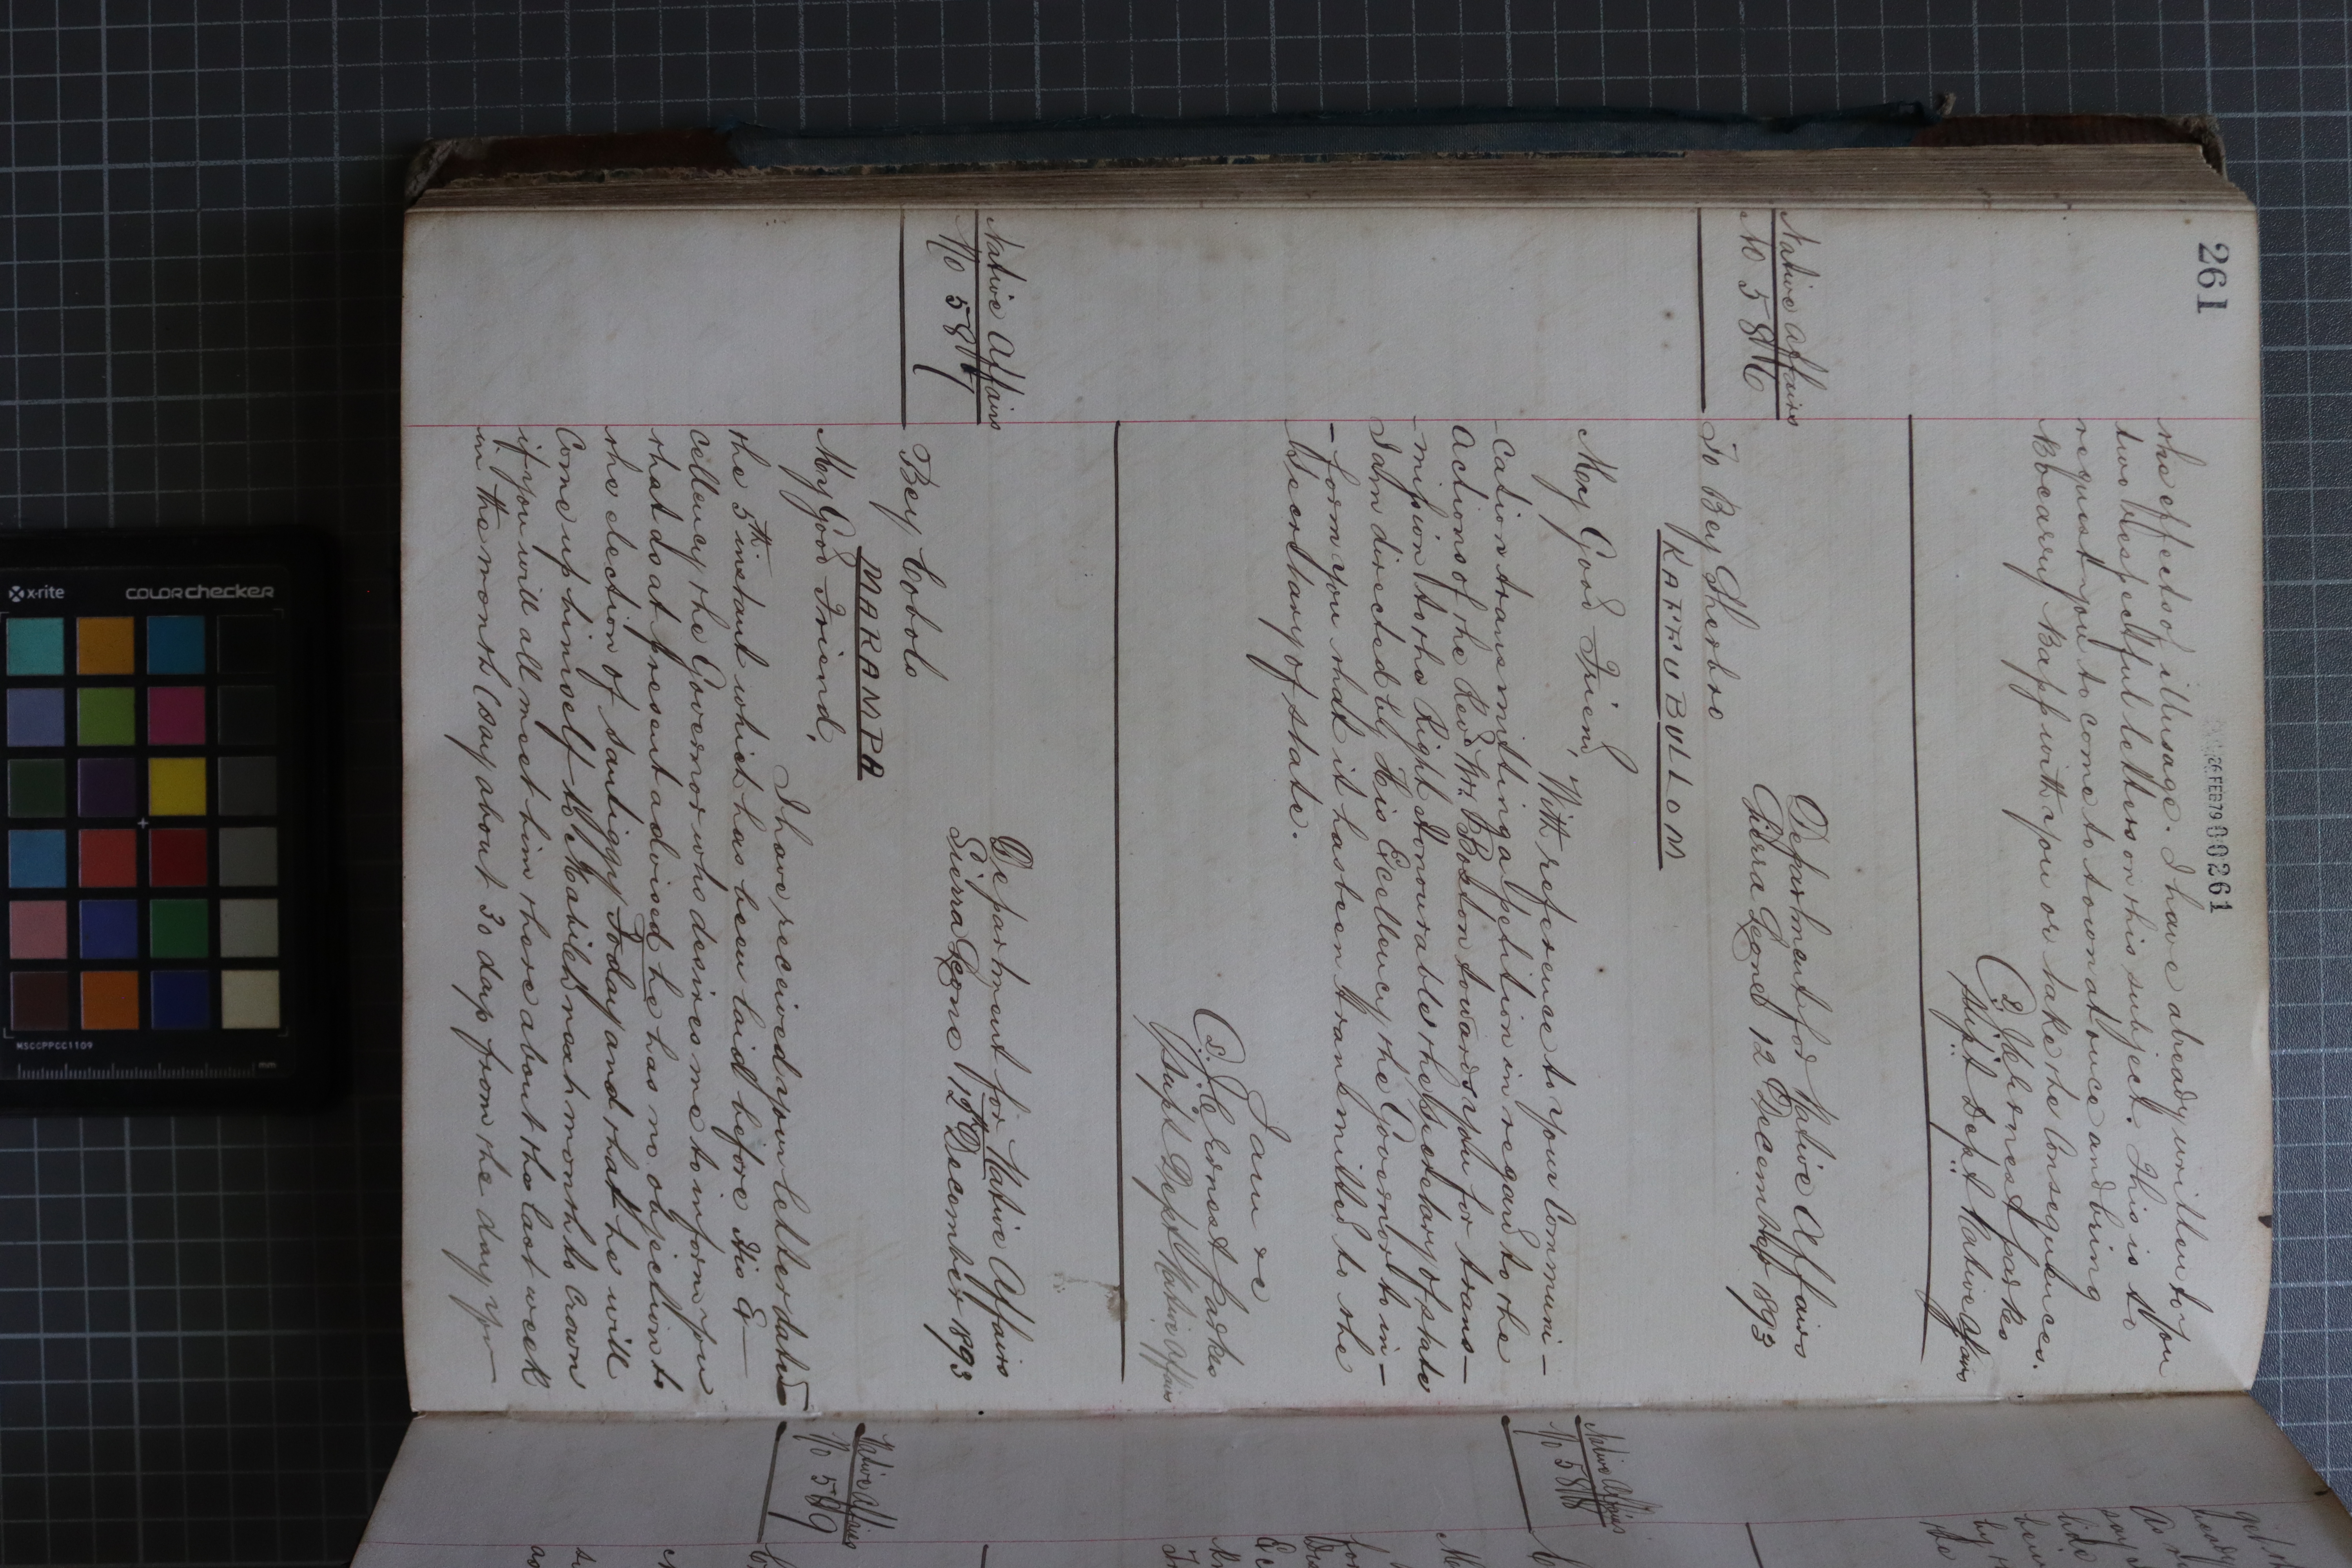 261
26 FEB 79 000261
the effects of illusage. I have already written to you
two respectful letters on this subject. This is to
request you to come to town at once and bring
Bocarry Bapp with you or take the consequences.
J. C. Ernest Parkes
Supt Dept Native Affairs
Native Affairs
No 586
Department for Native Affairs
Sierra Leone 12 December 1893
To Bey Sherbro
KAFFUBULLOM
My Good Friend,
With reference to your Communi-
-cation transmitting a petition in regard to the
Actions of the Revd Mr. Boston towards you for trans-
-mission to the Right Honourable the Secretary of State
I am directed by His Excellency the Governor to in-
-form you that it has been transmitted to the
Secretary of State.
I am &c
J. C. Ernest Parkes
Supt Dept Native Affairs
Native Affairs
No 587
Department for Native Affairs
Sierra Leone 12th December 1893
Bey Cobolo
MARAMPA
My Good Friend,
I have received your letter dated
the 5th instant which has been laid before His Ex-
cellency the Governor who desires me to inform you
that as at present advised he has no objection to
the election of Santiggy Foday and that he will
Come up himself to Mabile next month to Crown
if you will all meet him there about the last week
in the month (say about 30 days from the day you
Native Affairs
No 588
Native Affairs
No 589